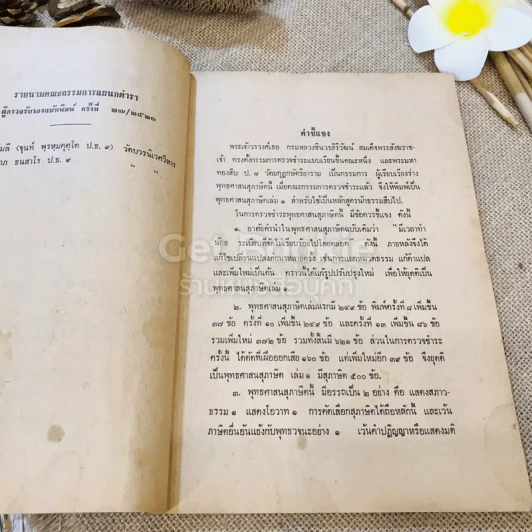 รายนามคณะกรรมการแผนกตำรา
ผู้ตรวจรับรองฉบับพิมพ์ ครั้งที่ ๒๗/๒๕๒๑
มลี (จูนท์ พฺรหฺมคุตฺโต ป.ธ. ๙) วัดบวรนิเวศวิหาร
ธนสาโร ป.ธ. ๙ " "
คำชี้แจง
พระเจ้าวรวงศ์เธอ กรมหลวงชินวรสิริวัฒน์ สมเด็จพระสังฆราช-
เจ้า ทรงตั้งกรรมการตรวจชำระแบบเรียนขึ้นคณะหนึ่ง และพระมหา
ทองสืบ ป. ๘ วัดมกุฏกษัตริยาราม เป็นกรรมการ ผู้เรียบเรียงร่าง
พุทธศาสนสุภาษิตนี้ เมื่อคณะกรรมการชำระแล้ว จึงให้พิมพ์เป็น
พุทธศาสนสุภาษิตเล่ม ๑ สำหรับใช้เป็นหลักสูตรนักธรรมสืบไป.
ในการตรวจชำระพุทธศาสนสุภาษิตนี้ มีข้อควรชี้แจง ดังนี้
๑. อาศัยคำนำในพุทธศาสนสุภาษิตฉบับเดิมว่า "มีเวลาทำ
น้อย ระเบียบที่จัดไว้เรียบร้อยไปโดยตลอด" ดังนี้ ภายหลังจึงได้
แก้ไขเปลี่ยนแปลงต่อมาหลายครั้ง เช่นการแยกหมวดธรรม แก้คำแปล
และเพิ่มใหม่เป็นต้น คราวนี้ได้แก้รูปปรับปรุงใหม่ เพื่อให้ยุติเป็น
พุทธศาสนสุภาษิตเล่ม ๑.
๒. พุทธศาสนสุภาษิตเล่มแรกมี ๒๔๙ ข้อ พิมพ์ครั้งที่ ๘ เพิ่มขึ้น
๓๗ ข้อ ครั้งที่ ๑๐ เพิ่มขึ้น ๒๔๙ ข้อ และครั้งที่ ๑๓ เพิ่มขึ้น ๘๖ ข้อ
รวมเพิ่มใหม่ ๓๗๒ ข้อ รวมทั้งสิ้นมี ๖๒๑ ข้อ ส่วนในการตรวจชำระ
ครั้งนี้ ได้คัดที่เฝือออกเสีย ๑๖๐ ข้อ แต่เพิ่มใหม่อีก ๓๙ ข้อ จึงยุติ
เป็นพุทธศาสนสุภาษิต เล่ม ๑ มีสุภาษิต ๕๐๐ ข้อ.
๓. พุทธศาสนสุภาษิตนี้ มีอรรถเป็น ๒ อย่าง คือ แสดงสภาว-
ธรรม ๑ แสดงโอวาท ๑ การคัดเลือกสุภาษิตได้ถือหลักนี้ และเว้น
ภาษิตอื่นอันแย้งกับพุทธวจนะอย่าง ๑ เว้นคำปฏิญญาหรือแสดงมติ